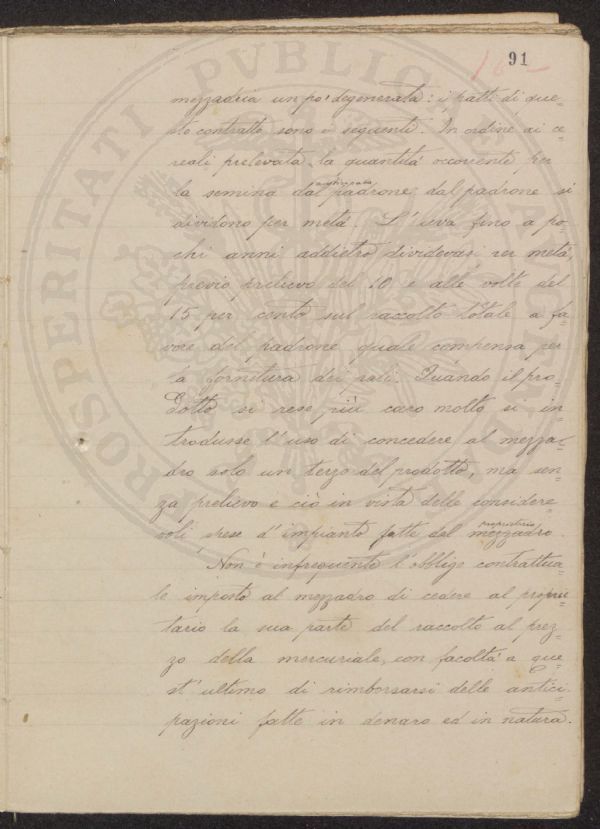 91
mezzadria un po' degenerata: i patti di que=
sto contratto sono i seguenti. In ordine ai ce=
reali prelevata la quantità occorrente per
la semina dal padrone dal padrone si
dividono per metà. L'uva fino a po=
chi anni addietro dividevasi per metà,
previo prelievo del 10 e alle volte del
15 per cento sul raccolto totale a fa=
vore del padrone quale compensa per
la fornitura dei pali. Quando il pro=
dotto si rese più caro molto si in=
trodusse l'uso di concedere al mezza=
dro solo un terzo del prodotto, ma sen=
za prelievo e ciò in vista delle considere=
voli spese d'impianto fatte dal mezzadro proprietario.
Non è infrequente l'obbligo contrattua=
le imposto al mezzadro di cedere al proprie=
tario la sua parte del raccolto al prez=
zo della mercuriale, con facoltà a que=
st'ultimo di rimborsarsi delle antici=
pazioni fatte in denaro ed in natura.
PROSPERITATI PVBLICAE